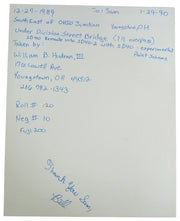 12-29-1989 To: Sam 1-29-90
Southeast of OHIO Junction Youngstown, OH
Under Division Street Bridge
SD40 SD40-2 with SD40 - experimental
Paint Scheme
Taken by:
William B. Hudson, III
Ave.
Youngstown, OH 44512
216 782-1343
Roll # 120
Neg # 10
Fuji 200
Thank You Sam,
Bill